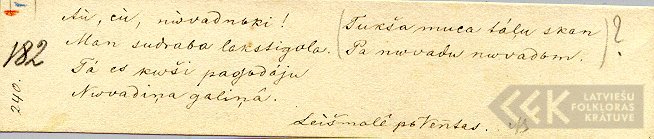 182
240.
Aiu, ciu, nuvadnuki!
Man sudraba lakstigola.
Tá es kuši pagodáju
Nuvadiņa galiņâ.
(Tukša muca tálu skan
Pa nuvadu nuvadom.) ?
Leišmalê
LATVIEŠU
FOLKLORAS
KRĀTUVE